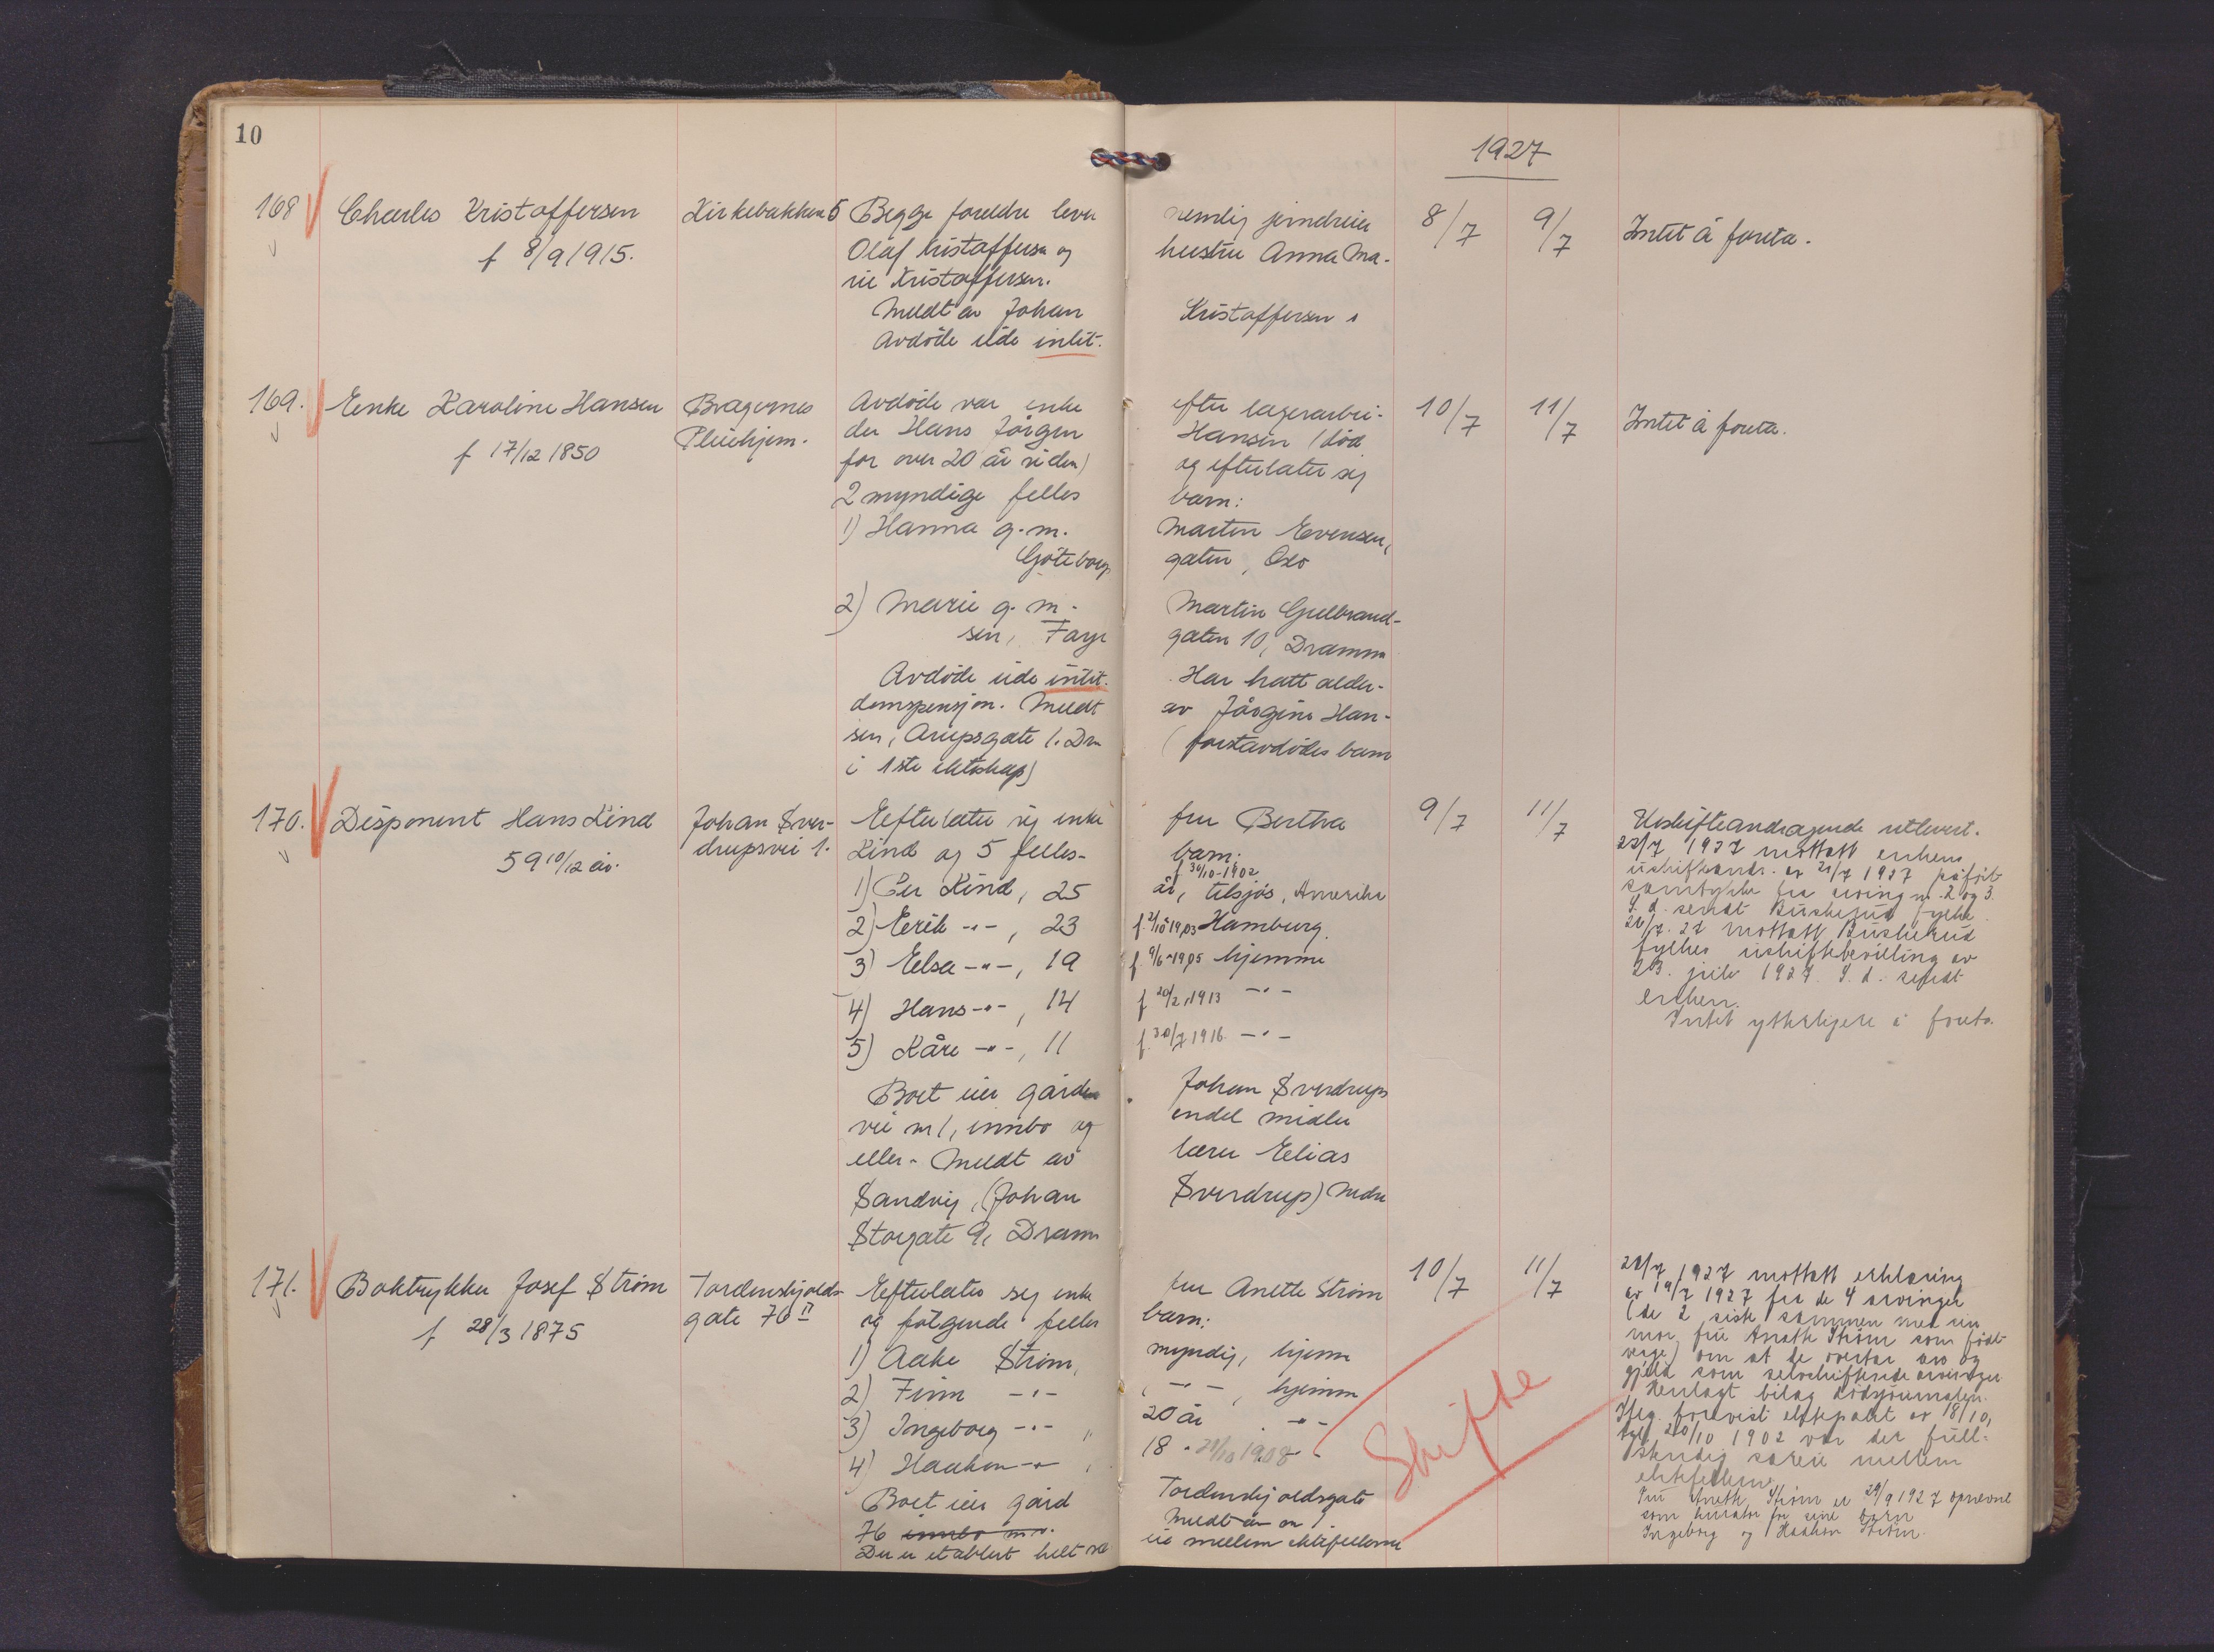 10
1927
168
Charles Kristoffersen
f 8/9 1915.
Kirkebakken 5
Begge foreldre lever nemlig jerndreier
Olaf Kristoffersen og hustru Anna Ma-
rie Kristoffersen.
Meldt av Johan Kristoffersen
Avdöde eide intet.
8/7
9/7
Intet å foreta.
169.
Enke Karoline Hansen
f 17/12 1850
Bragernes
Pleiehjem.
Avdöde var enke efter lagerarbei-
der Hans Jörgen Hansen (död
for over 20 år siden) og efterlater sig
2 myndige felles barn:
1) Hanna g. m. Martin Evensen,
Göteborg gaten, Oslo
2) Marie g. m. Martin Gulbrand-
sen, Faye gaten 10, Dramm
Avdöde eide intet. Har hatt alder-
domspensjon. Meldt av Jörgine Han-
sen, Arupsgate 1. Dr (forstavdödes barn
i 1ste ekteskap)
10/7
11/7
Intet å foreta.
170.
Disponent Hans Kind
59 10/12 år.
Johan Sver-
drupsvei 1.
Efterlater sig enke fru Bertha
Kind og 5 felles- barn:
1) Per Kind, 25 år, f 30/10-1902 tilsjös, Amerika
2) Erik -"-, 23 f. 1903 Hamburg.
3) Elsa -"-, 19 f. 9/6-1905 hjemme
4) Hans -"-, 14 f 20/2 1913 -"-
5) Kåre -"-, 11 f. 30/7 1916 -"-
Boet eier gården Johan Sverdrups
vei nr 1, innbo og endel midler
ellers. Meldt av lærer Elias
Sandvig, (Johan Sverdrup) Nedre
Storgate 9, Dramm
9/7
11/7
Uskifteandragende utlevert.
22/7 1927 mottatt enkens
uskifteandr. av 21/7 1927 påfört
samtykke fra arving nr. 2 og 3.
S. d. sendt Buskerud fylke.
26/7. 27 mottatt Buskerud
fylkes uskiftebevilling av
23. juli 1927. S. d. sendt
enken.
Intet ytterligere å foreta.
171.
Boktrykker Josef Ström
f 28/3 1875
Tordenskjolds-
gate 76 II
Efterlater sig enke fru Anette Ström
og fölgende felles barn:
1) Aake Ström, myndig, hjemme
2) Finn -"- , -"-, hjemme
3) Ingeborg -"- 20 år -"-
4) Haakon -"- 18 " 1908 -"-
Boet eier gård Tordenskjoldsgate
76 innbo m.v. Meldt av en
Der er etablert helt sæ eie mellem ektefellerne
10/7
11/7
Skifte
20/7 1927 mottatt erklæring
av 19/7 1927 fra de 4 arvinger
(de 2 siste sammen med sin
mor, fru Anette Ström som födt
verge) om at de overtar arv og
gjeld som selvskiftende arvinger
Henlagt bilag dödsjournalen.
Iflg. forevist ektepakt av 18/10,
tgl. 20/10 1902 var der full-
stendig særeie mellem
ektefellerne.
Fru Anette Ström er 29/9 1927 opnevnt
som kurator for sine barn
Ingeborg og Haakon Ström.